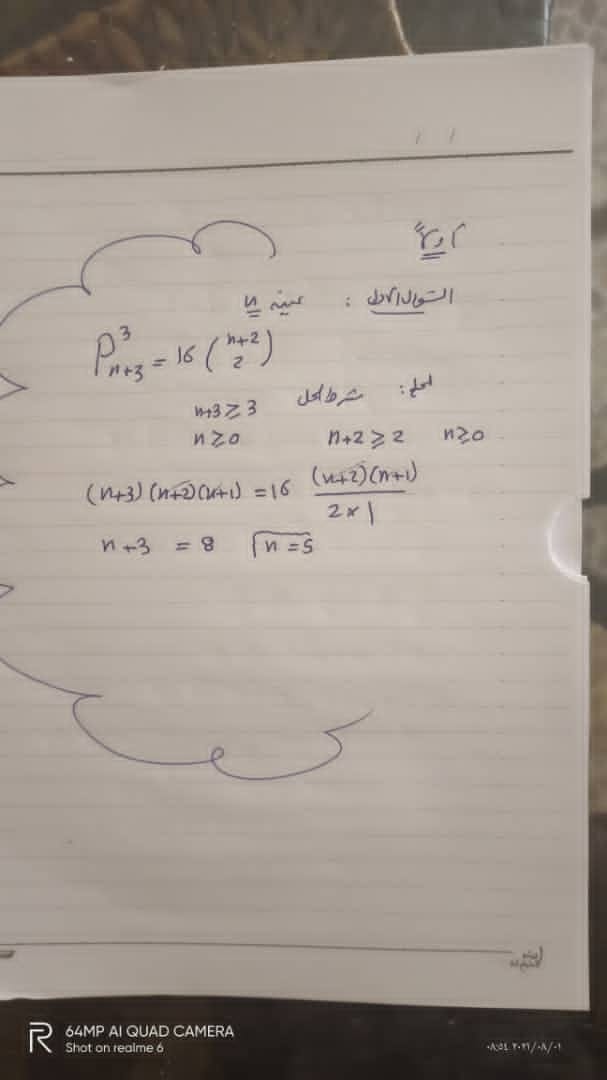 / /
أولاً
السؤال الأول : عين n
P³ₙ₊₃ = 16 (n+2 2)
الحل: شرط الحل n+3 ≥ 3
n ≥ 0 n+2 ≥ 2 n ≥ 0
(n+3)(n+2)(n+1) = 16 (n+2)(n+1) / 2×1
n+3 = 8 n = 5
64MP AI QUAD CAMERA
Shot on realme 6
٠٨:٥٤ ٢٠٢١/٠٨/٠١